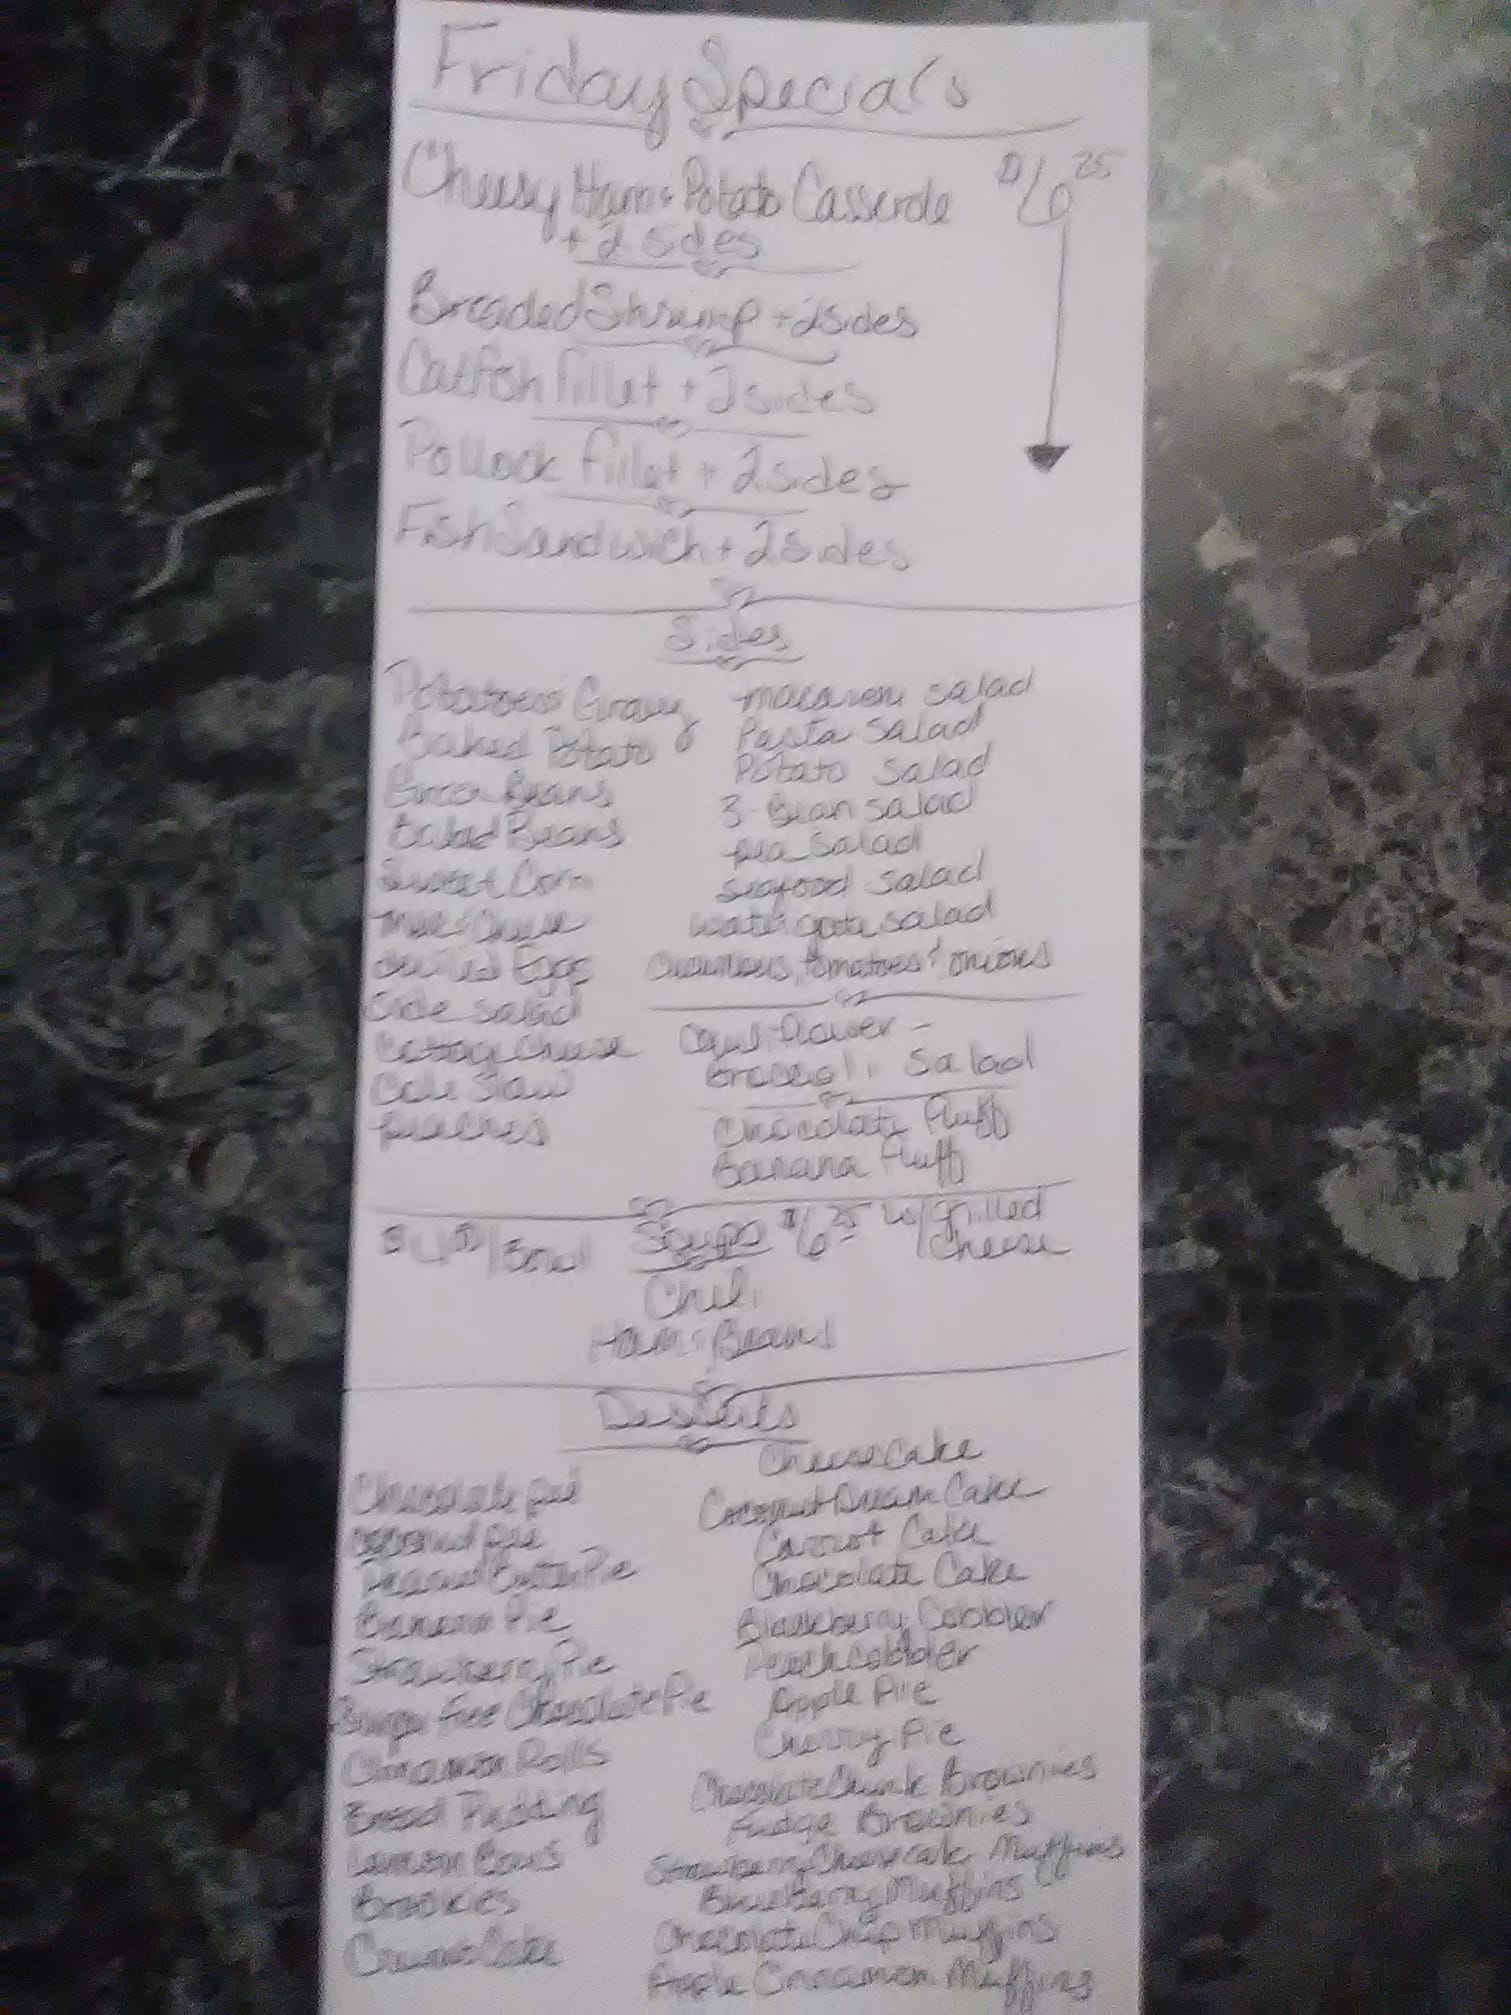 Friday Specials
Cheesy Ham & Potato Casserole $6 25
+ 2 sides
Breaded Shrimp + 2 sides
Catfish fillet + 2 sides
Pollock fillet + 2 sides
Fish Sandwich + 2 sides
Sides
Potatoes & Gravy
Baked Potato
Green Beans
Baked Beans
Sweet Corn
Mac & Cheese
deviled Eggs
Side salad
Cottage Cheese
Cole Slaw
peaches
macaroni salad
Pasta salad
Potato salad
3-Bean salad
pea salad
seafood salad
water gate salad
Cucumbers, tomatoes & onions
Cauliflower -
Broccoli Salad
Chocolate Fluff
Banana Fluff
/Bowl Soups $6 25 w/grilled
cheese
Chili
Ham & Beans
Desserts
Chocolate pie
coconut pie
Peanut Butter Pie
Banana Pie
Strawberry Pie
Sugar Free Chocolate Pie
Cinnamon Rolls
Bread Pudding
Lemon Bars
Brookies
Cake
Cheese Cake
Coconut Dream Cake
Carrot Cake
Chocolate Cake
Blackberry Cobbler
Peach cobbler
Apple Pie
Cherry Pie
Chocolate Chunk Brownies
Fudge Brownies
Strawberry Cheesecake Muffins
Blueberry Muffins
Chocolate Chip Muffins
Apple Cinnamon Muffins